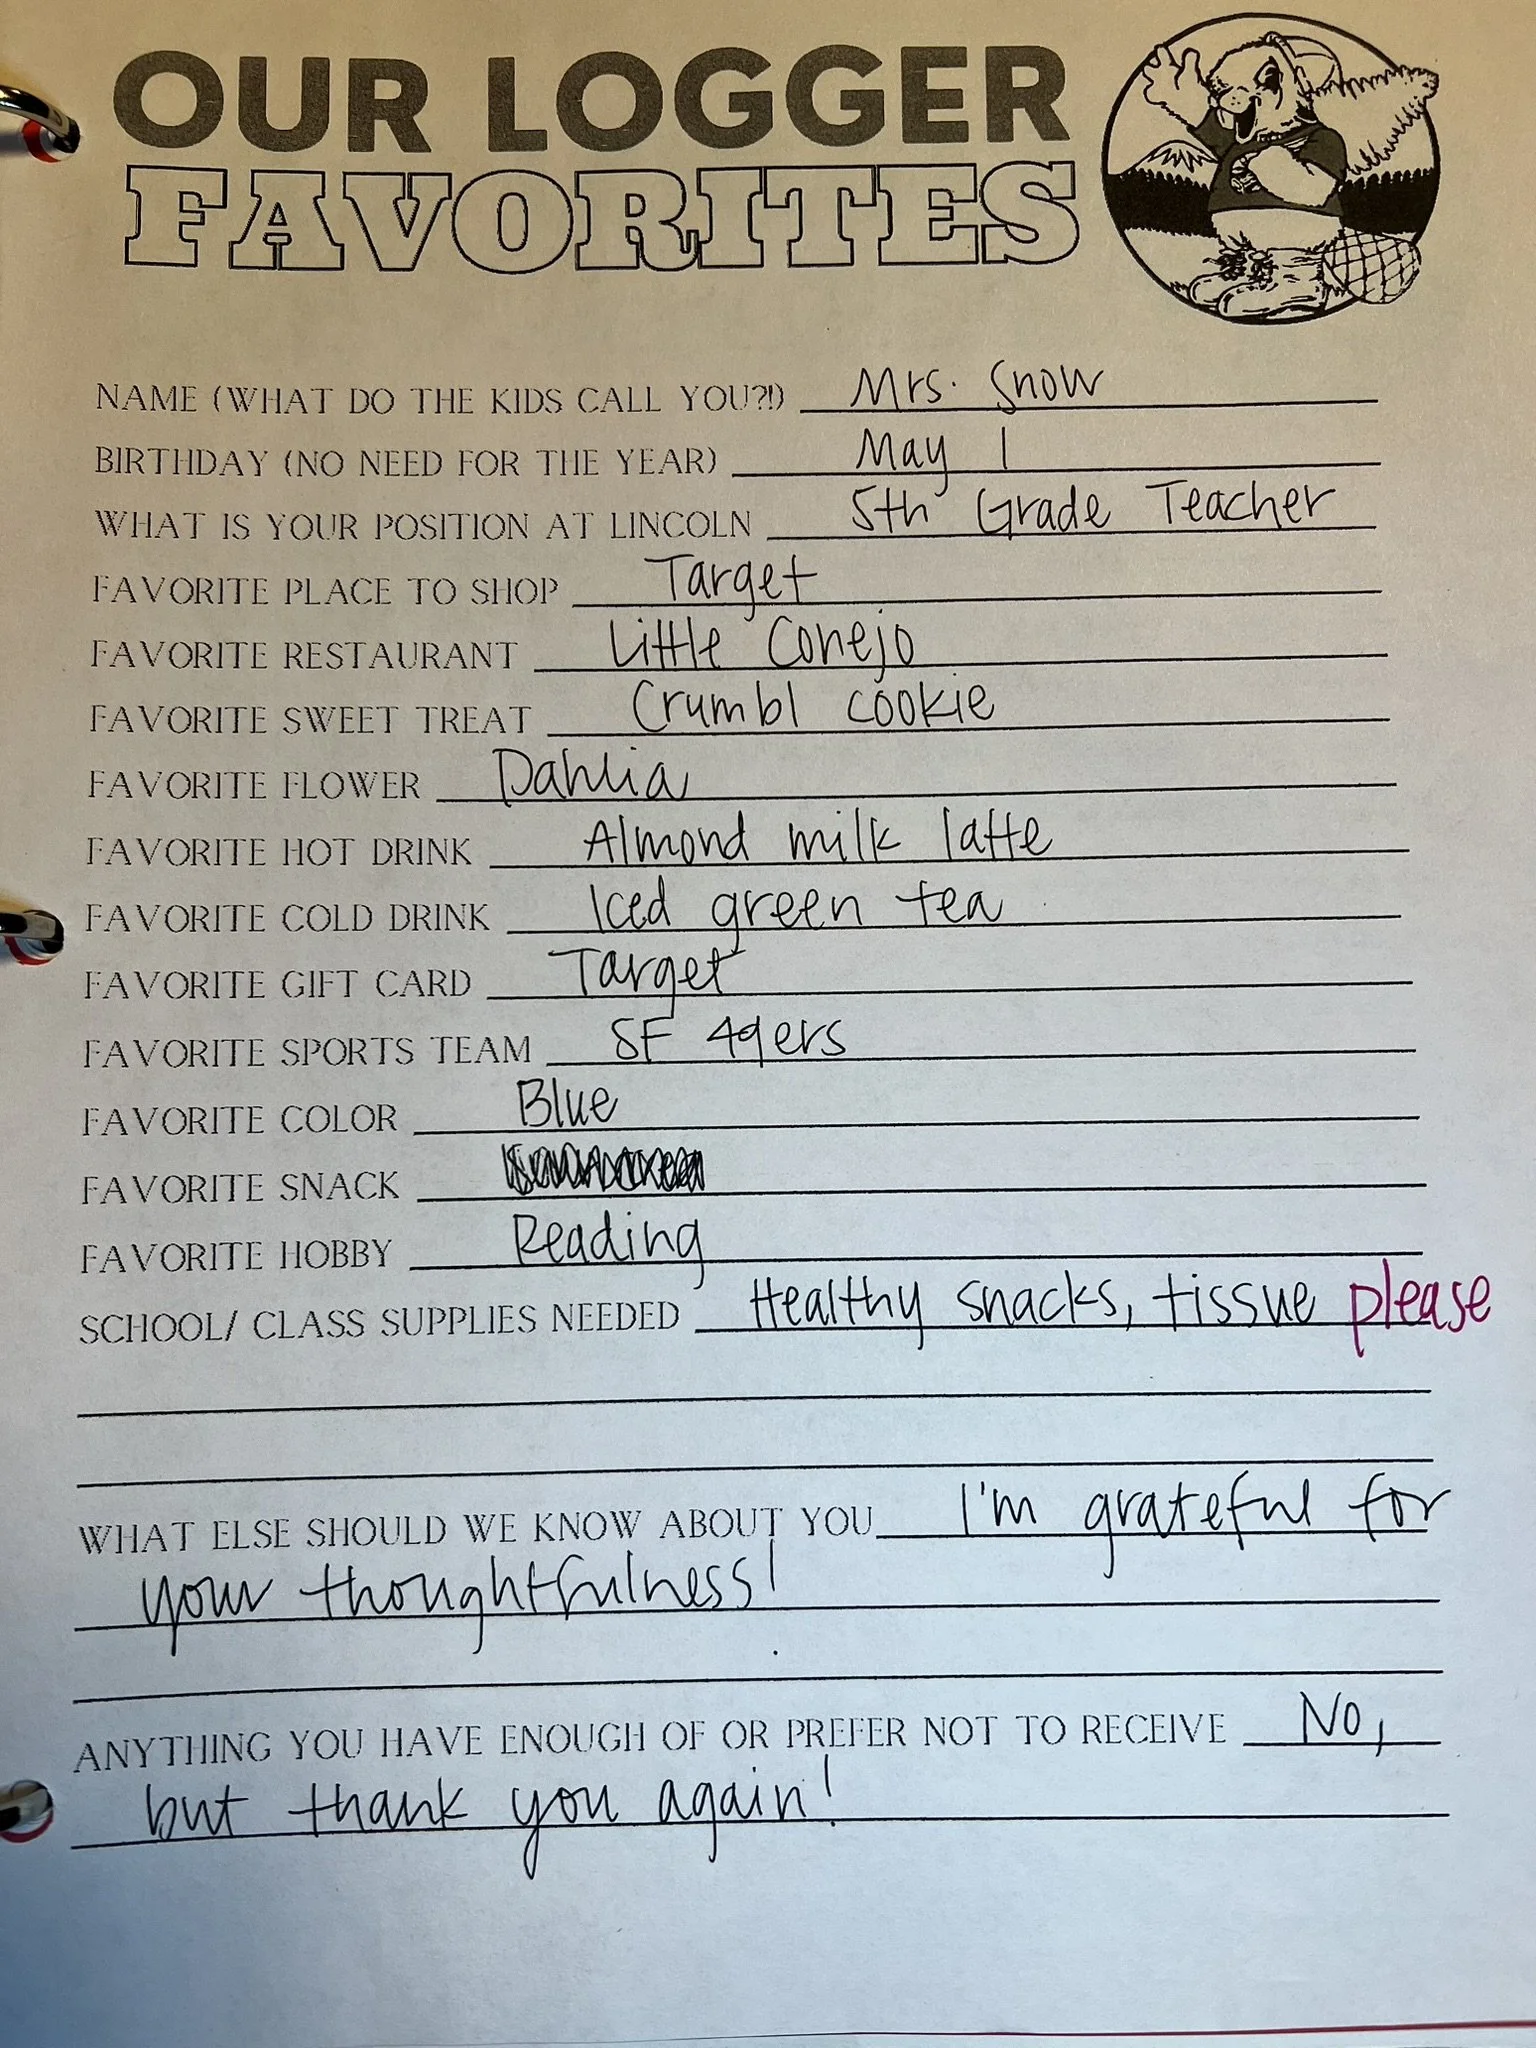 OUR LOGGER
FAVORITES
NAME (WHAT DO THE KIDS CALL YOU?!) Mrs. Snow
BIRTHDAY (NO NEED FOR THE YEAR) May 1
WHAT IS YOUR POSITION AT LINCOLN 5th Grade Teacher
FAVORITE PLACE TO SHOP Target
FAVORITE RESTAURANT Little Conejo
FAVORITE SWEET TREAT Crumbl cookie
FAVORITE FLOWER Dahlia
FAVORITE HOT DRINK Almond milk latte
FAVORITE COLD DRINK Iced green tea
FAVORITE GIFT CARD Target
FAVORITE SPORTS TEAM SF 49ers
FAVORITE COLOR Blue
FAVORITE SNACK
FAVORITE HOBBY Reading
SCHOOL/ CLASS SUPPLIES NEEDED Healthy snacks, tissue please
WHAT ELSE SHOULD WE KNOW ABOUT YOU I'm grateful for
your thoughtfulness!
ANYTHING YOU HAVE ENOUGH OF OR PREFER NOT TO RECEIVE No,
but thank you again!